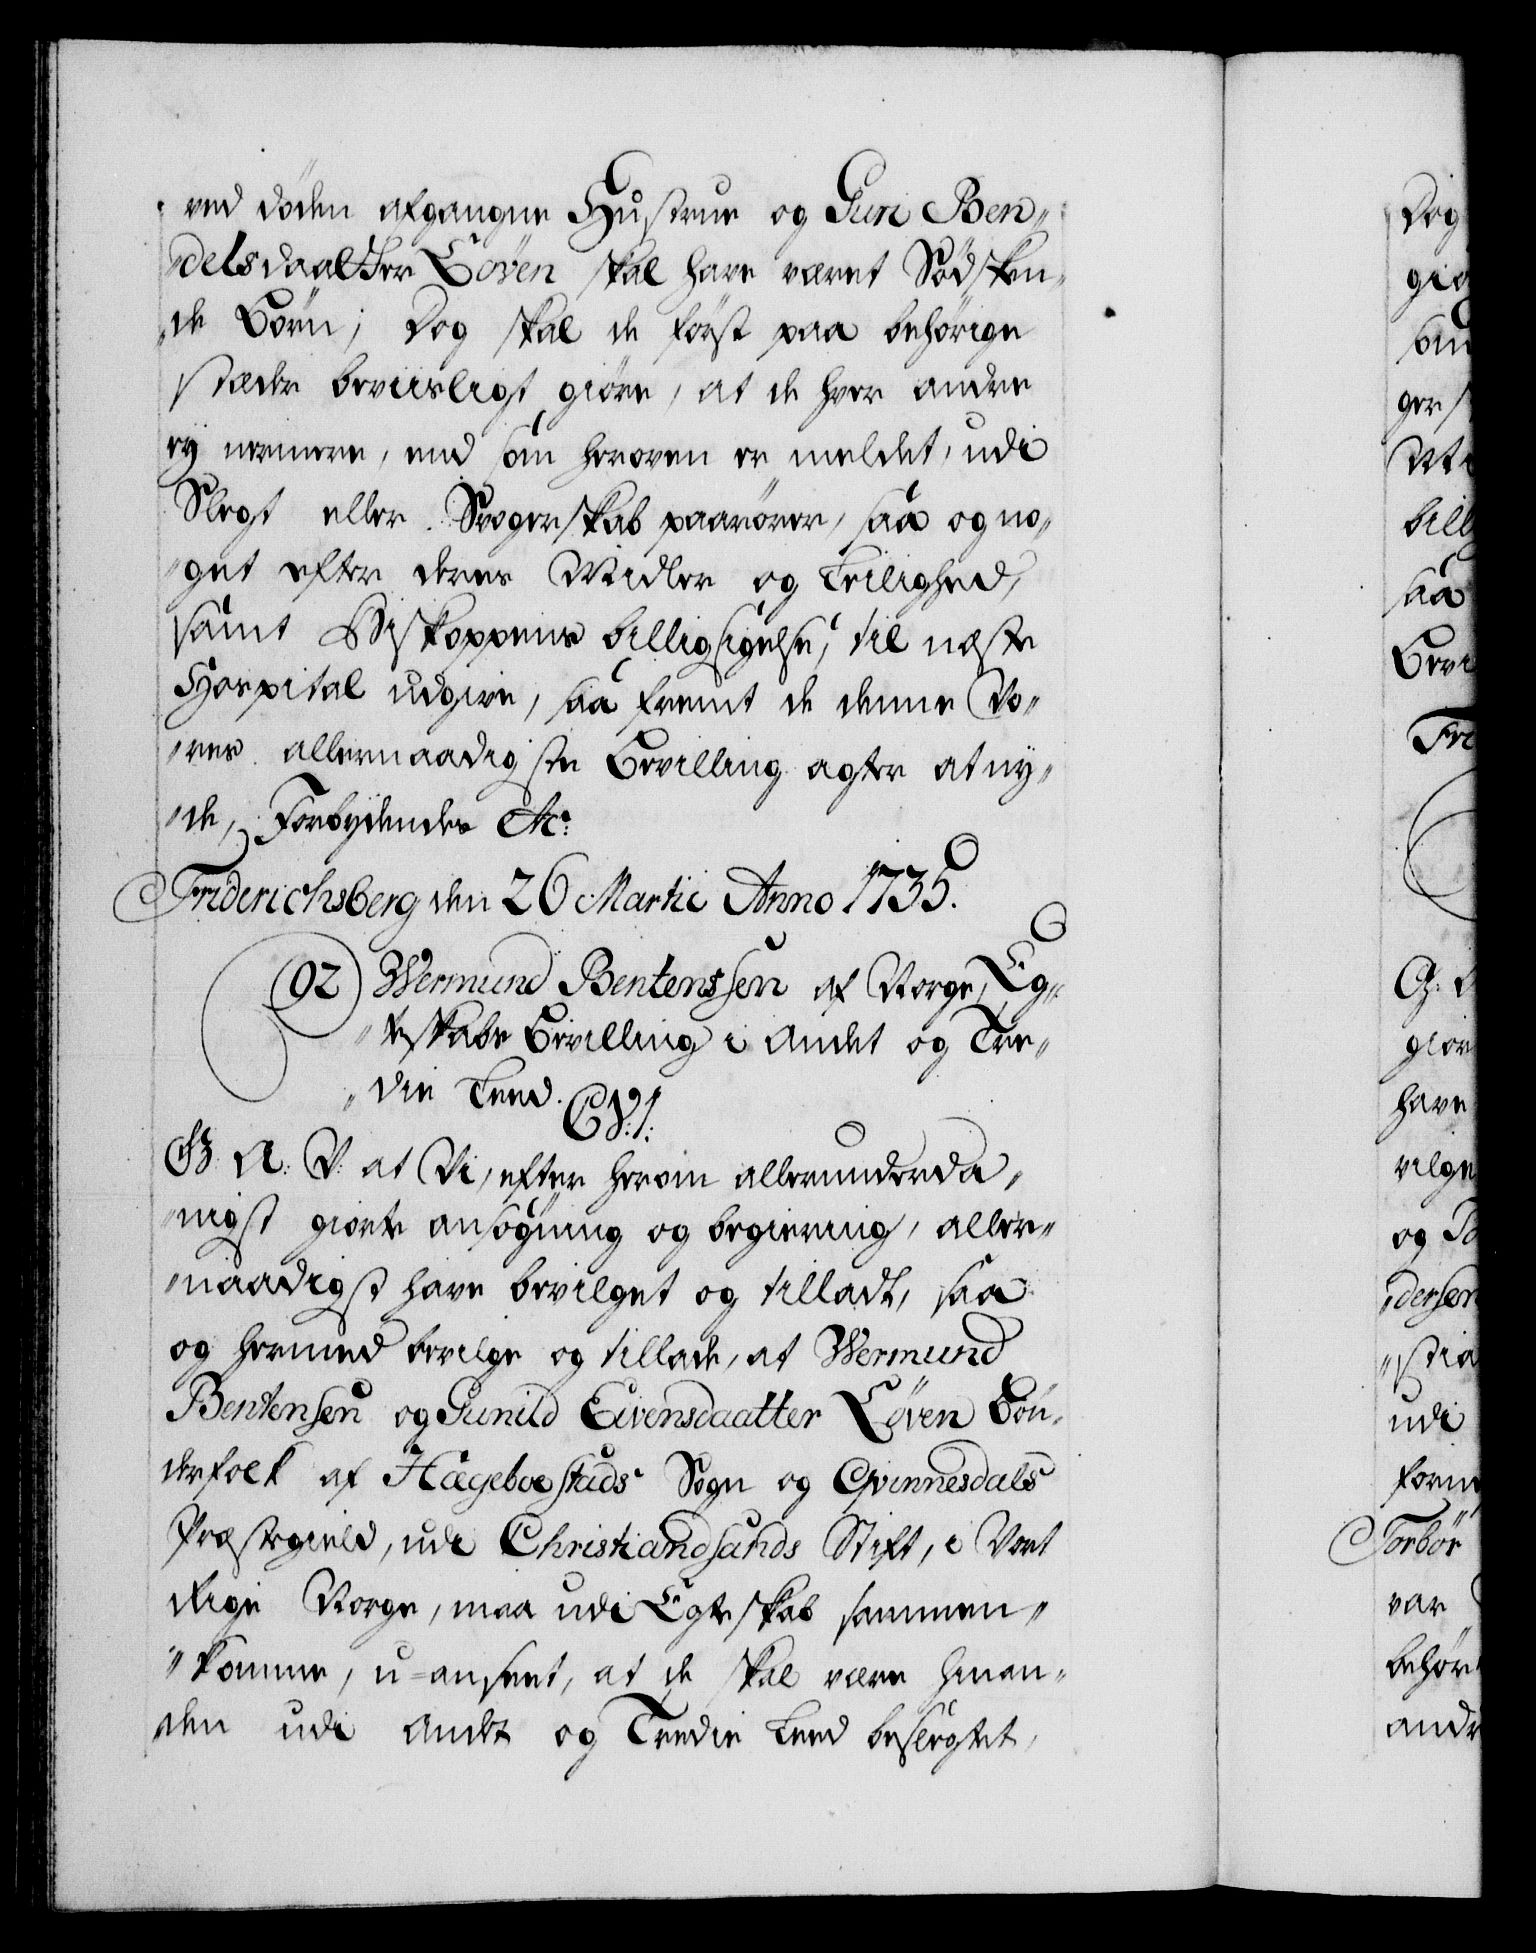 ved döden afgangne Hustrue og Guri Ben„
„delsdaatter Löven skal have været Södsken„
„de Börn; Dog skal de först paa behörige
stæder beviisligt giöre, at de hver andre
ey nermere, end som heroven er meldet, udi
Slegt eller Svogerskab paarörer, saa og no„
„get efter deres Midler og Leilighed,
samt Biskoppens billigsigelse, til næste
Hospital udgive, saa fremt de denne Vo„
„res allernaadigste Bevilling agter at ny„
„de, Forbydendes etc:
Friderichsberg den 26 Martii Anno 1735.
92) Wermund Bentenssen af Norge, Eg„
„teskabs Bevilling i Andet og Tre„
„die Leed. C. V. I.
G. A. V. at Vi, efter herom allerunderda„
„nigst giorte ansögning og begiering, aller„
„naadigst have bevilget og tilladt, saa
og hermed bevilge og tillade, at Wermund
Bentensen og Gunild Eivensdaatter Löven Bön„
derfolk af Hægeboestads Sogn og Qvinnesdals
Præstegield, udi Christiandsands Stift, i Vort
Rige Norge, maa udi Egteskab sammen„
„komme, u-anseet, at de skal være hinan„
„den udi Andet og Tredie Leed beslegtet,
Dog
giö
som
ger
billi
saa
Bevi
Fri
giör
have
vilge
og
„dersen
„stia
udi
Torbör
var
behör
andr